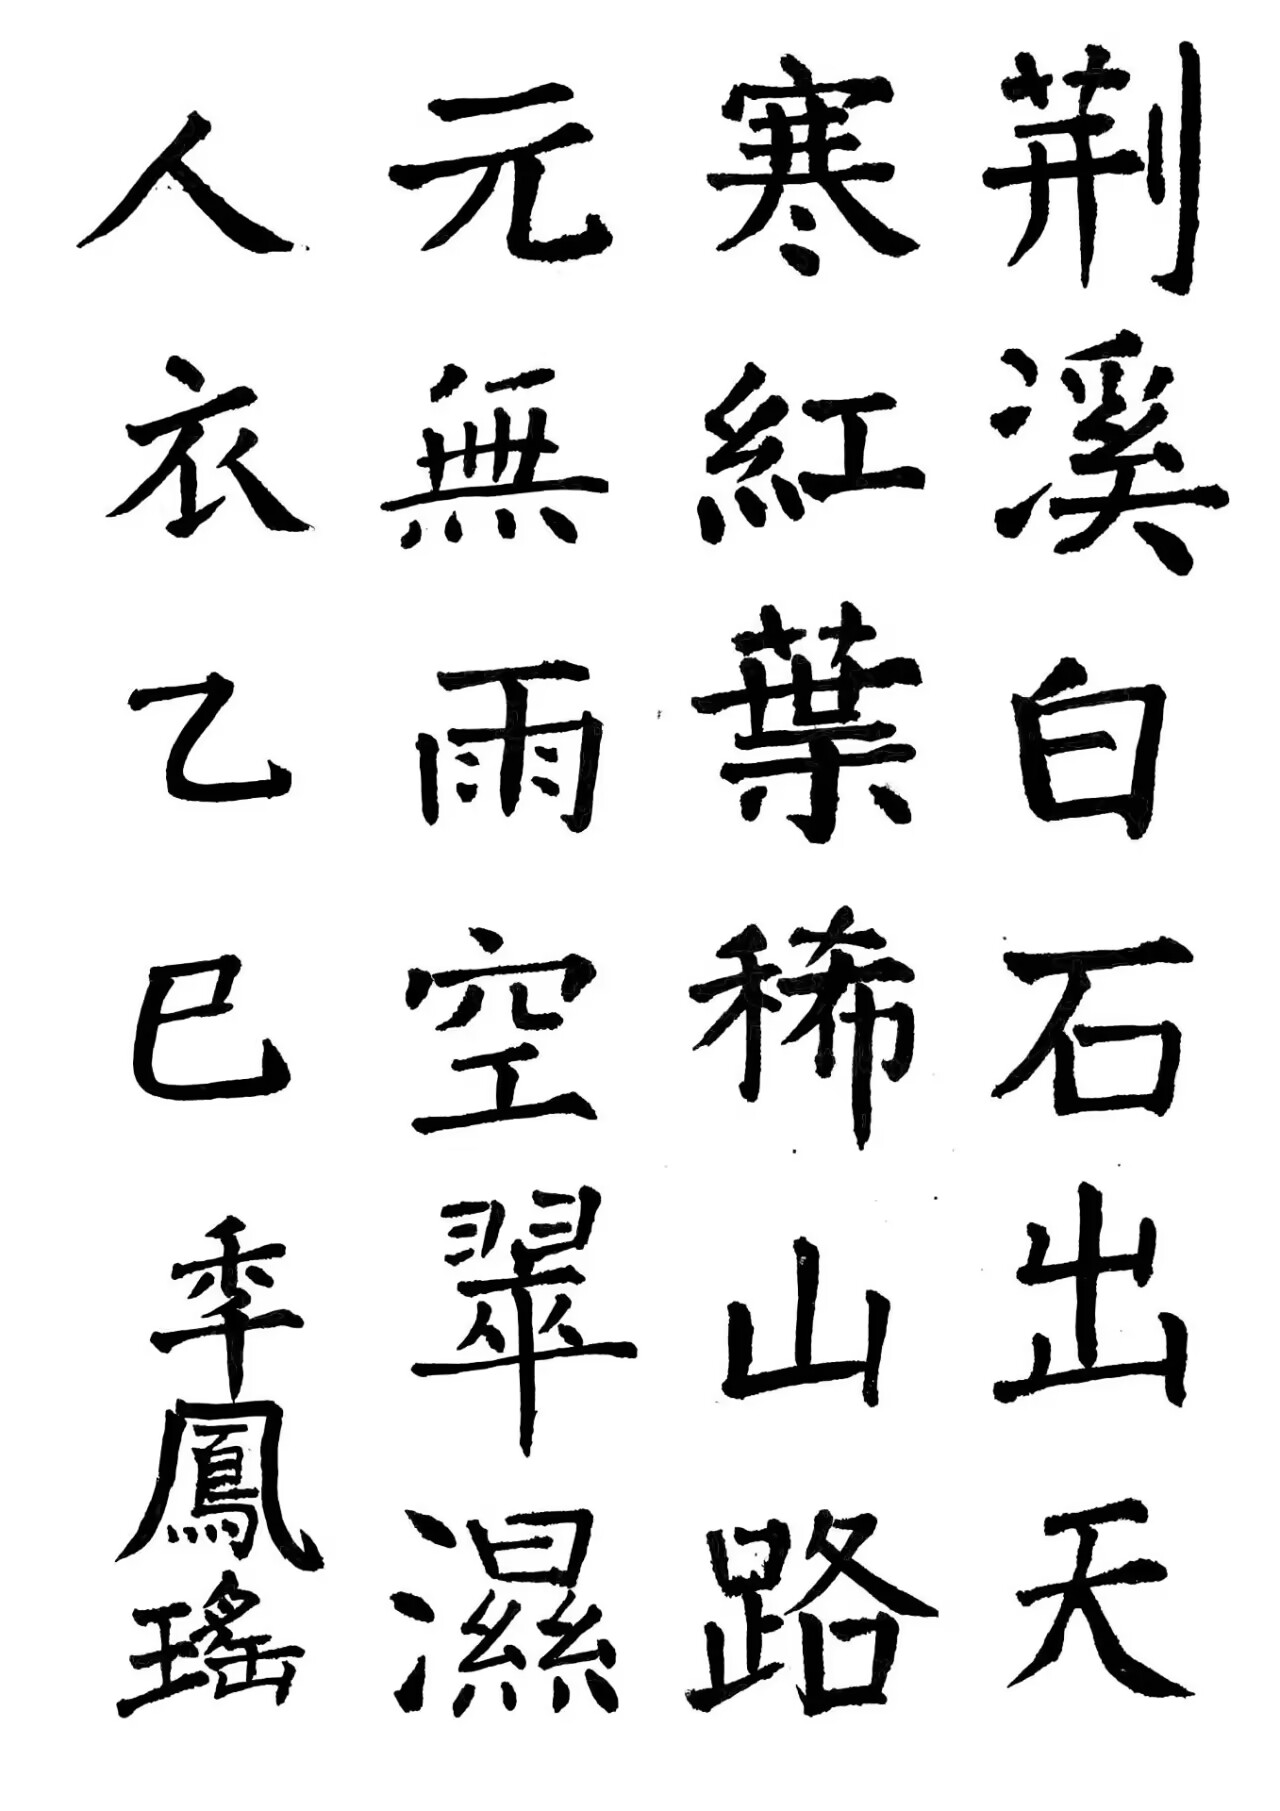 荆溪白石出天
寒紅葉稀山路
元無雨空翠濕
人衣乙巳季鳳瑤